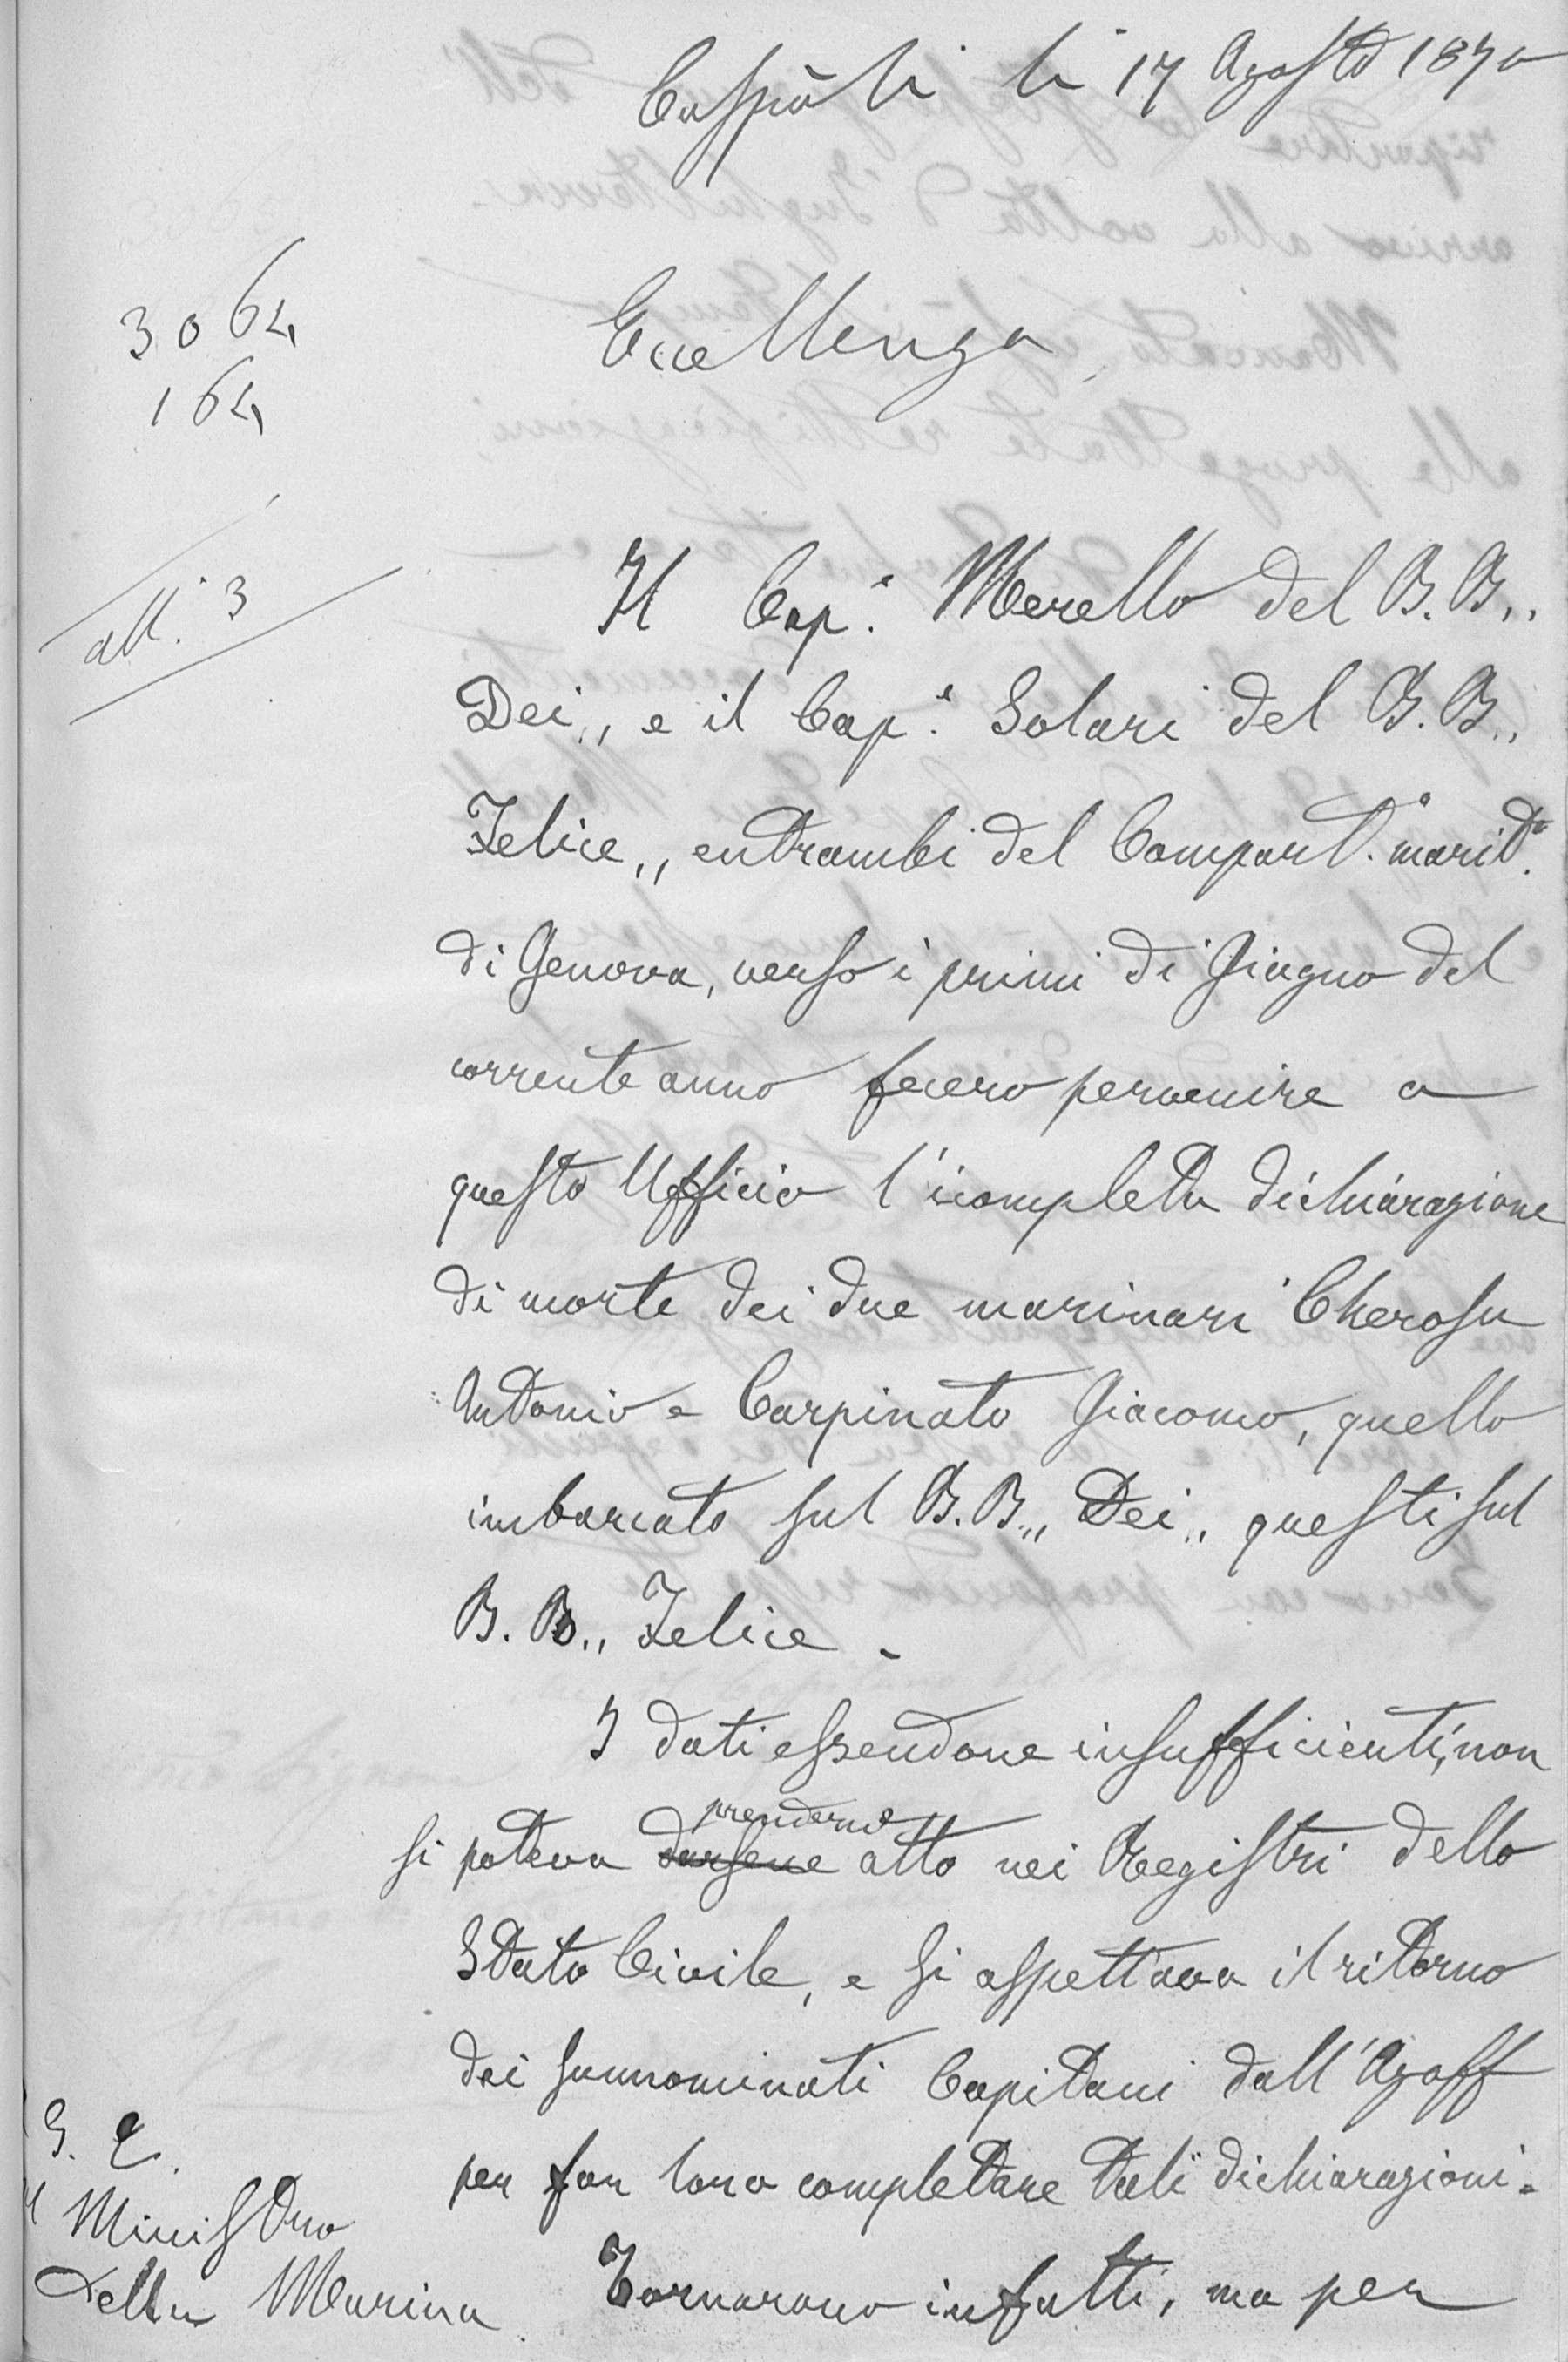 Cospōli li 17 Agosto 1870
3064
164
Eccellenza,
all.i 3
Il Cap.e Merello del B.B. „
Dei „ e il Cap.e Solari del B.B. „
Felice „ entrambi del Compart.o marit.o
di Genova, verso i primi di Giugno del
corrente anno fecero pervenire a
questo Ufficio l'icompleta dichiarazione
di morte dei due marinari Cherosu
Antonio e Carpinato Giacomo, quello
imbarcato sul B.B. „ Dei „ questi sul
B.B. „ Felice -
I dati essendone insufficienti, non
prenderne
si poteva darsene atto nei Registri dello
Stato Civile, e si aspettava il ritorno
dei sunnominati Capitani dall'Azoff
per far loro completare tali dichiarazioni.
Tornarono infatti, ma per
S. E.
il Ministro
della Marina